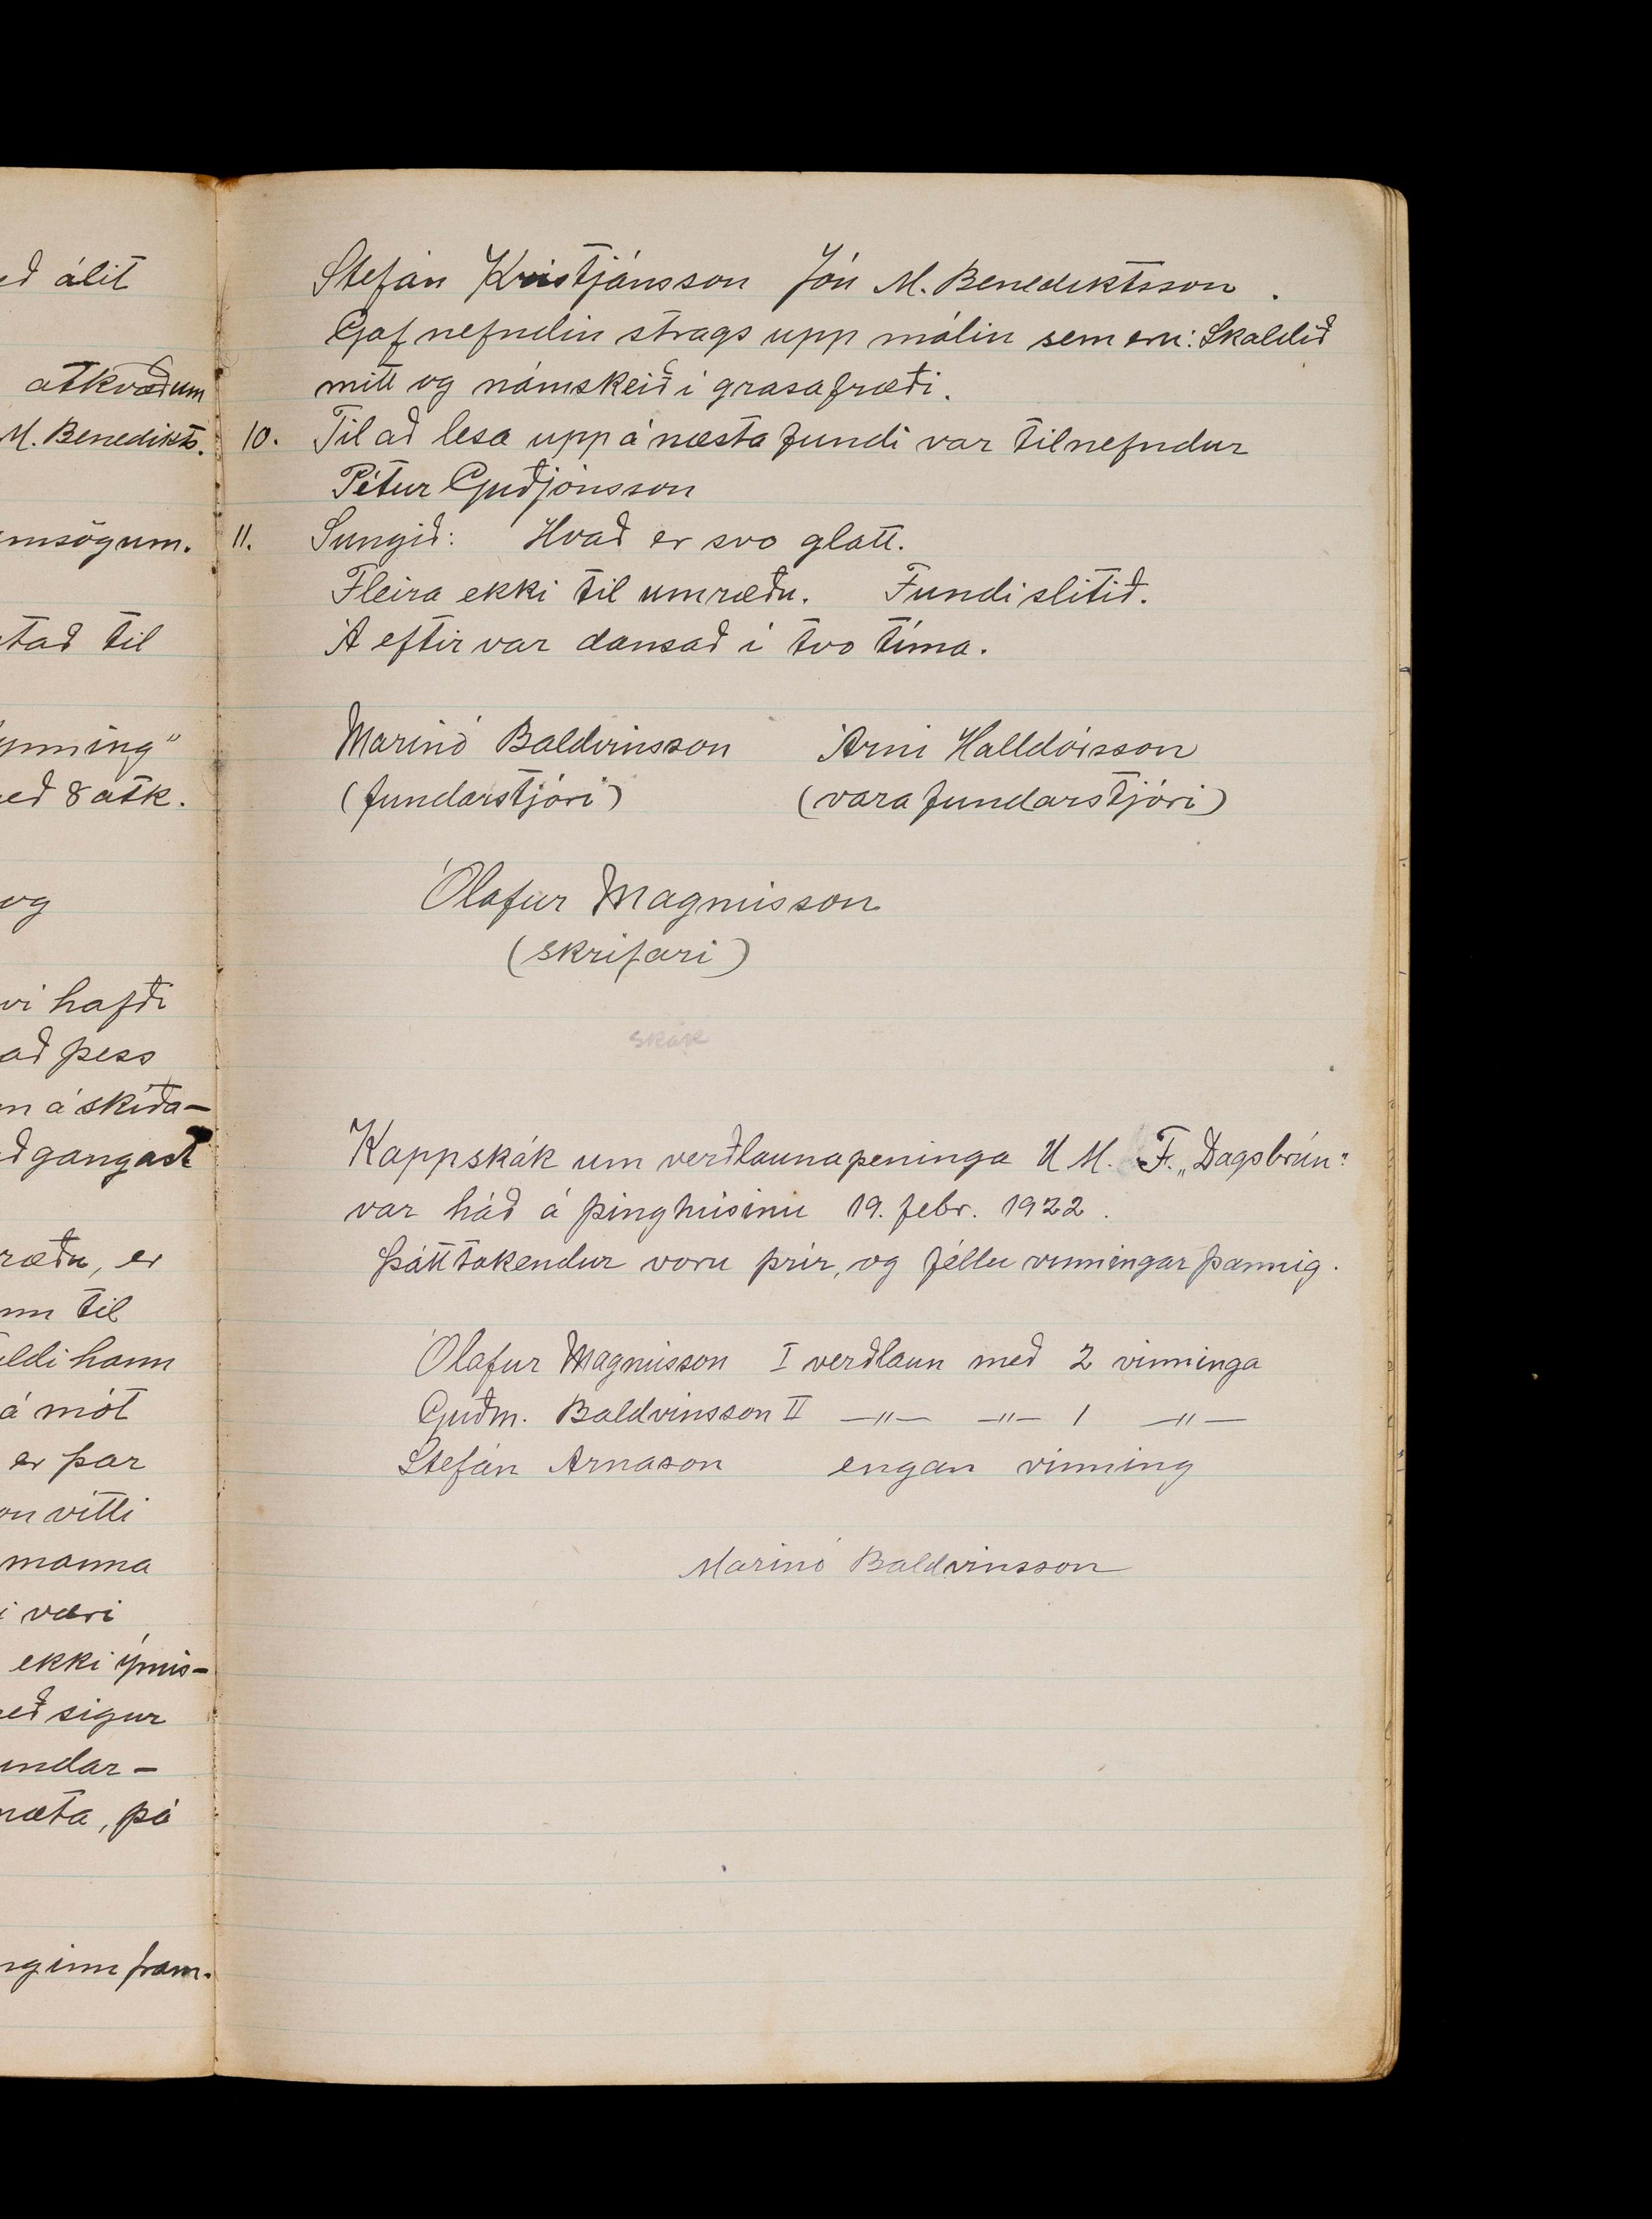 ð álit
atkvæðum
M. Benedikts.
msögum.
tað til
ynning"
eð 8 atk.
og
vi hafði
að þess
n á skíða-
ð gangast
ræðu, er
nn til
ldi hann
á mót
er þar
on vítti
manna
i væri
ekki ýmis-
eð sigur
undar-
mæta, þá
nginn fram.
Stefán Kristjánsson Jón M. Benediktsson.
Gaf nefndin strags upp málin sem eru: Skaldið
mitt og námskeið í grasafræði.
10. Til að lesa upp á næsta fundi var tilnefndur
Pétur Guðjónsson
11. Sungið: Hvað er svo glatt.
Fleira ekki til umræðu. Fundi slitið.
Á eftir var dansað í tvo tíma.
Marinó Baldvinsson Árni Halldórsson
(fundarstjóri) (varafundarstjóri)
Ólafur Magnússon
(skrifari)
skák
Kappskák um verðlaunapeninga U M. F. „Dagsbrún"
var háð á þinghúsinu 19. febr. 1922.
Þátttakendur voru þrír, og féllu vinningar þannig.
Ólafur Magnússon I verðlaun með 2 vinninga
Guðm. Baldvinsson II —"— —"— 1 —"—
Stefán Arnason engan vinning
Marinó Baldvinsson